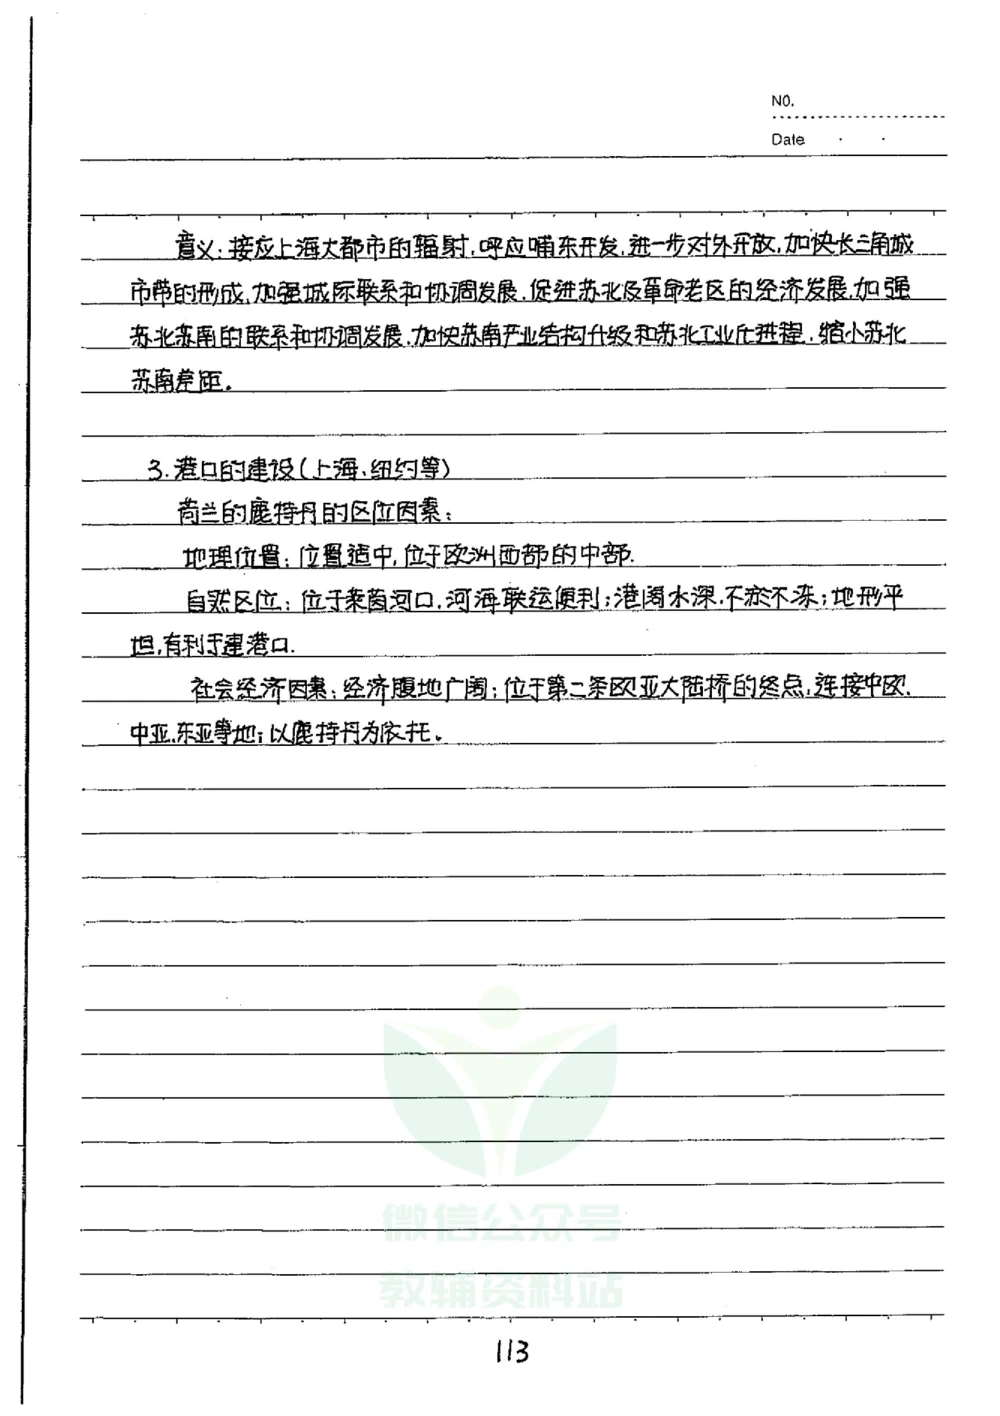 NO.
Date
意义：接应上海大都市的辐射，呼应浦东开发，进一步对外开放，加快长三角城
市带的形成，加强城际联系和协调发展，促进苏北及革命老区的经济发展，加强
苏北苏南的联系和协调发展，加快苏南产业结构升级和苏北工业化进程，缩小苏北
苏南差距。
3.港口的建设(上海、纽约等)
荷兰的鹿特丹的区位因素：
地理位置：位置适中，位于欧洲西部的中部.
自然区位：位于莱茵河口，河海联运便利；港阔水深，不淤不冻；地形平
坦，有利于建港口.
社会经济因素：经济腹地广阔；位于第二条欧亚大陆桥的终点，连接中欧、
中亚、东亚等地；以鹿特丹为依托。
微信公众号
教辅资料站
113